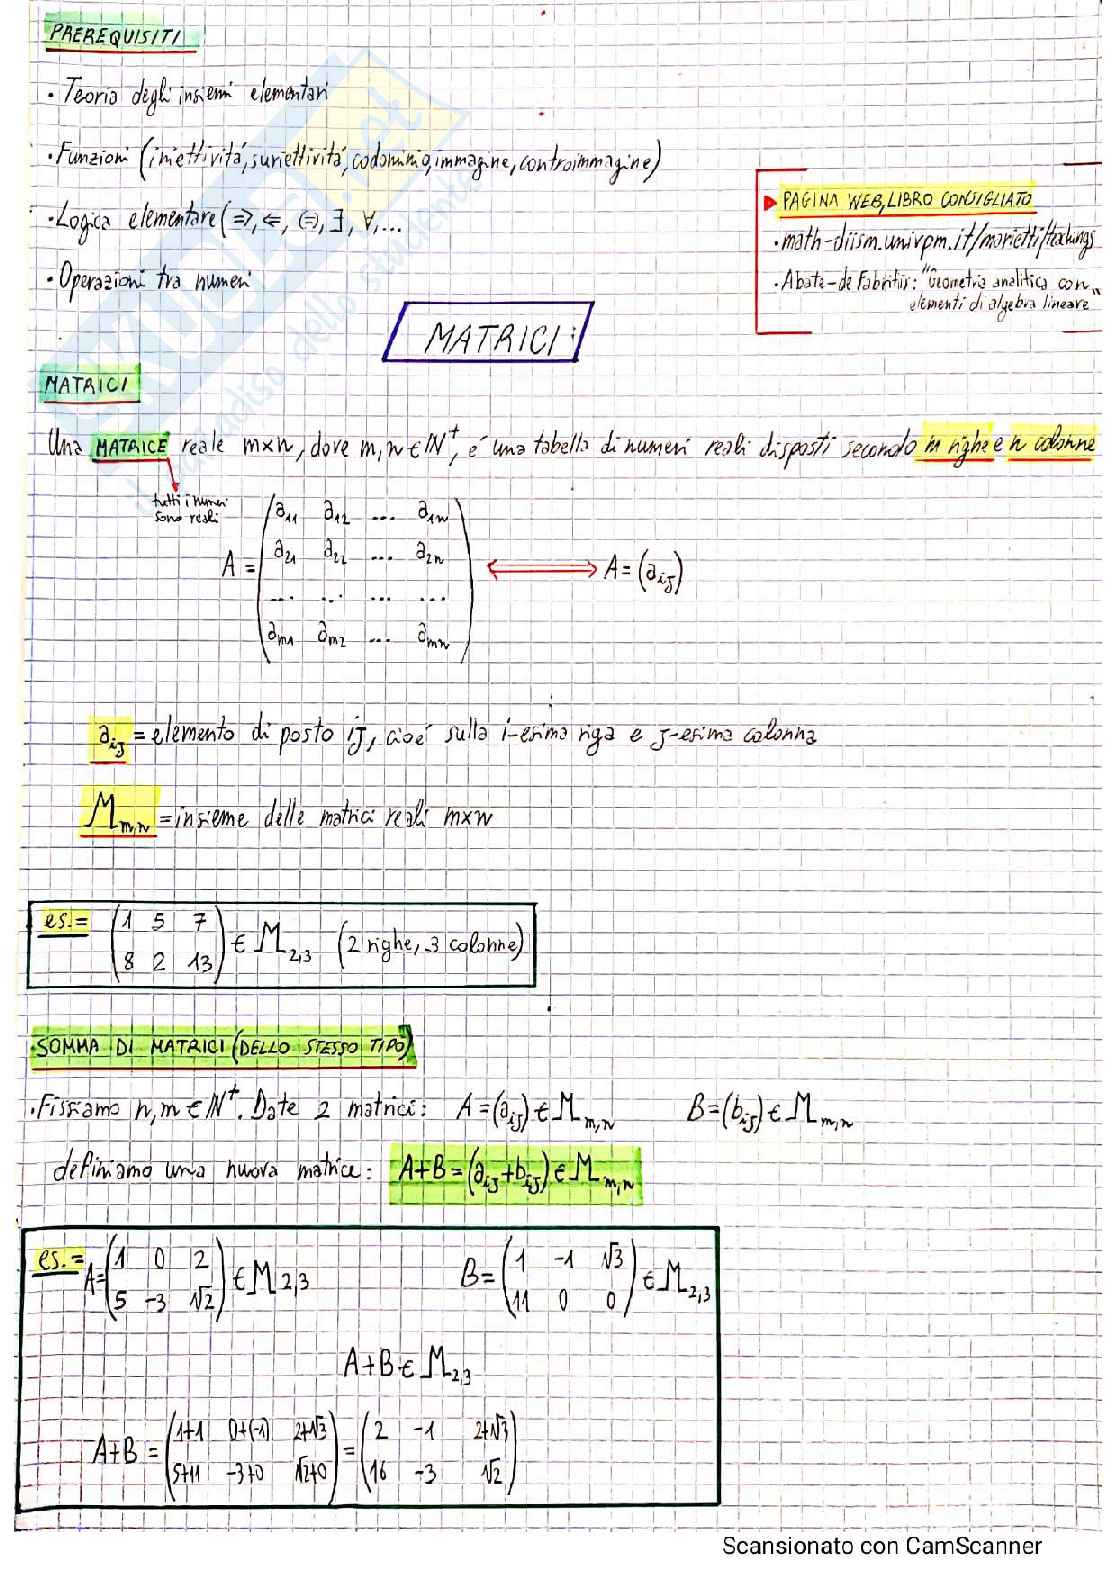 PREREQUISITI
· Teoria degli insiemi elementari
· Funzioni (iniettivitá, suriettivitá, codominio, immagine, controimmagine)
· Logica elementare (⇒, ⇐, ⇔, ∃, ∀, ...
· Operazioni tra numeri
PAGINA WEB, LIBRO CONSIGLIATO
· math-diism.univpm.it/marietti/teachings
· Abate-de Fabritiis: "Geometria analitica con
elementi di algebra lineare"
MATRICI:
MATRICI
Una MATRICE reale m×n, dove m, n ∈ ℕ⁺, é una tabella di numeri reali disposti secondo m righe e n colonne
tutti i numeri
sono reali
A = (a₁₁ a₁₂ ... a₁ₙ
a₂₁ a₂₂ ... a₂ₙ
... ... ... ...
aₘ₁ aₘ₂ ... aₘₙ) ⟺ A = (aᵢⱼ)
aᵢⱼ = elemento di posto ij, cioé sulla i-esima riga e j-esima colonna
Mₘ,ₙ = insieme delle matrici reali m×n
es.= (1 5 7
8 2 13) ∈ M₂,₃ (2 righe, 3 colonne)
SOMMA DI MATRICI (DELLO STESSO TIPO)
· Fissiamo n, m ∈ ℕ⁺. Date 2 matrici: A=(aᵢⱼ) ∈ Mₘ,ₙ B=(bᵢⱼ) ∈ Mₘ,ₙ
definiamo una nuova matrice: A+B=(aᵢⱼ+bᵢⱼ) ∈ Mₘ,ₙ
es.= A=(1 0 2
5 -3 √2) ∈ M₂,₃ B=(1 -1 √3
11 0 0) ∈ M₂,₃
A+B ∈ M₂,₃
A+B = (1+1 0+(-1) 2+√3
5+11 -3+0 √2+0) = (2 -1 2+√3
16 -3 √2)
Scansionato con CamScanner